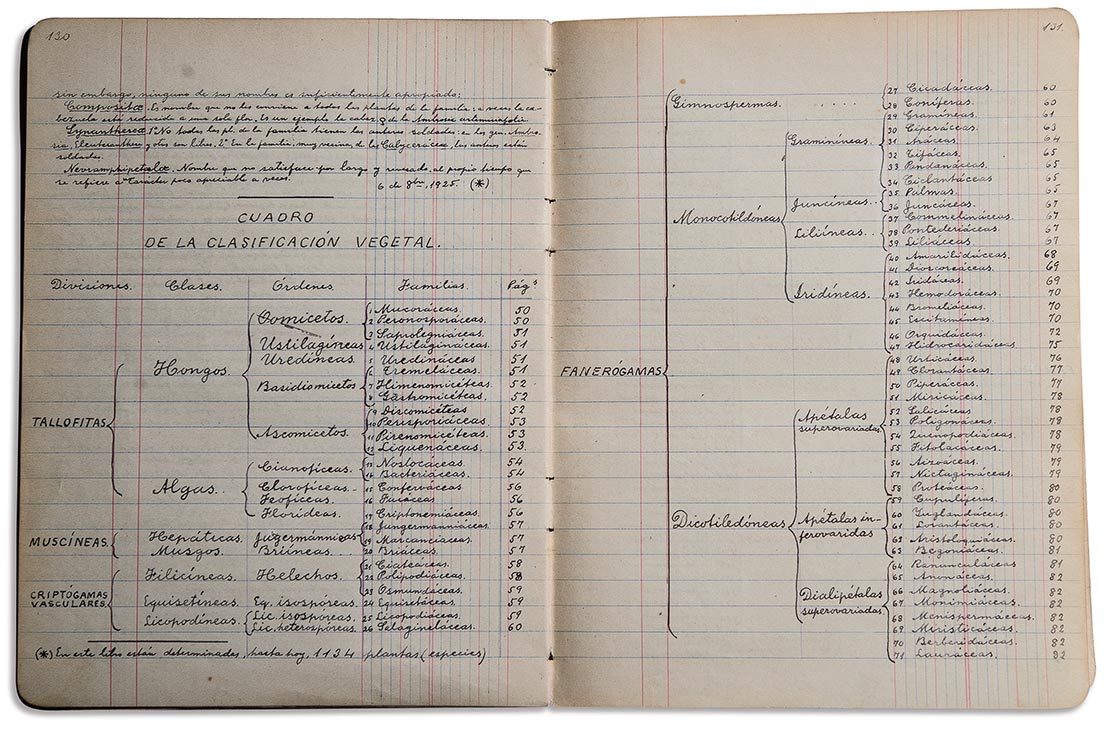 130
sin embargo, ninguno de sus nombres es suficientemente apropiado:
Compositæ. Es nombre que no les conviene a todas las plantas de la familia: a veces la ca-
bezuela está reducida a una sola flor. Es un ejemplo la cabez. ♀ de la Ambrosia artemisiæfolia
Synanthereæ. 1º No todas las pl. de la familia tienen las anteras soldadas: en los gen. Ambro-
sia, Eleuteranthera y otros son libres. 2º En la familia, muy vecina, de las Calyceráceas, las anteras están
soldadas.
Nevramphipetalæ. Nombre que no satisface por largo y revesado, al propio tiempo que
se refiere a un carácter poco apreciable a veces. 6 de 8bre, 1925. (*)
CUADRO
DE LA CLASIFICACIÓN VEGETAL.
Divisiones. Clases. Órdenes. Familias. Págs
TALLOFITAS. Hongos. Oomicetos. 1 Mucoráceas. 50
2 Peronosporáceas. 50
3 Saprolegniáceas. 51
Ustilagíneas 4 Ustilagináceas. 51
Uredíneas. 5 Uredináceas 51
Basidiomicetos 6 Tremeláceas. 51
7 Himenomicéteas. 52
8 Gastromicéteas. 52
Ascomicetos. 9 Discomicéteas 52
10 Perisporiáceas. 53
11 Pirenomicéteas. 53
12 Liquenáceas. 53
Algas. Cianofíceas. 13 Nostocáceas. 54
14 Bacteriáceas. 54
Clorofíceas. 15 Conferiáceas 56
Feofíceas. 16 Fucáceas 56
Florídeas. 17 Criptonemiáceas. 56
MUSCÍNEAS. Hepáticas. Jugermánnieas 18 Jungermanniáceas. 57
19 Marcanciáceas. 57
Musgos. Briíneas. 20 Briáceas. 57
CRIPTÓGAMAS VASCULARES. Filicíneas. Helechos. 21 Ciateáceas. 58
22 Polipodiáceas. 58
23 Osmundáceas. 59
Equisetíneas. Eq. isospóreas. 24 Equisetáceas. 59
Licopodíneas. Lic. isospóreas. 25 Licopodiáceas. 59
Lic. heterospóreas. 26 Selagineláceas. 60
(*) En este libro están determinadas, hasta hoy, 1134 plantas (especies)
131.
FANERÓGAMAS
Gimnospermas. 27 Cicadáceas. 60
28 Coníferas. 60
Monocotildóneas Graminíneas. 29 Gramíneas. 61
30 Ciperáceas. 63
31 Aráceas. 64
32 Tifáceas. 65
33 Pandanáceas. 65
34 Ciclantáceas. 65
Juncíneas. 35 Palmas. 65
36 Juncáceas. 67
Liliíneas. 37 Commelináceas. 67
38 Pontederiáceas. 67
39 Liliáceas. 67
Iridíneas. 40 Amarilidáceas. 68
41 Dioscoreáceas. 69
42 Iridáceas. 69
43 Hemodoráceas. 70
44 Bromeliáceas. 70
45 Escitamíneas. 70
46 Orquidáceas. 72
47 Hidrocaridáceas. 75
Dicotiledóneas Apétalas superovariadas 48 Urticáceas. 76
49 Clorantáceas. 77
50 Piperáceas. 77
51 Miricáceas. 78
52 Salicáceas. 78
53 Poligonáceas. 78
54 Quenopodiáceas. 78
55 Fitolacáceas. 79
56 Aizoáceas. 79
57 Nictagináceas. 79
58 Proteáceas. 80
Apétalas in- 59 Cupulíferas. 80
ferovaridas 60 Juglandáceas. 80
61 Lorantáceas. 80
62 Aristoloquiáceas. 80
63 Begoniáceas. 81
Dialipétalas superovariadas 64 Ranunculáceas. 81
65 Anonáceas. 82
66 Magnoliáceas. 82
67 Monimiáceas. 82
68 Menispermáceas. 82
69 Miristicáceas. 82
70 Berberidáceas. 82
71 Lauráceas. 82